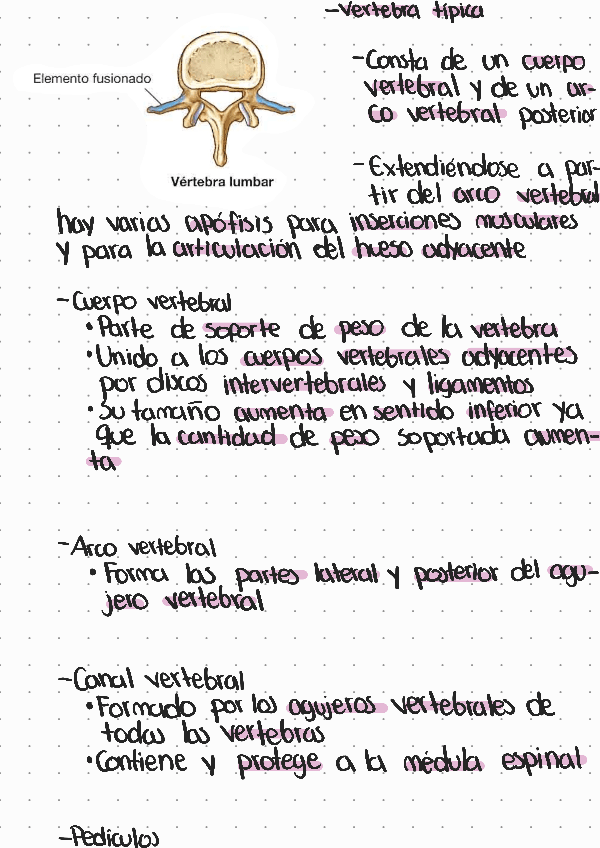 -Vertebra típica
Elemento fusionado
Vértebra lumbar
-Consta de un cuerpo
vertebral y de un ar-
co vertebral posterior
-Extendiéndose a par-
tir del arco vertebral
hay varias apófisis para inserciones musculares
y para la articulación del hueso adyacente
-Cuerpo vertebral
•Parte de soporte de peso de la vertebra
•Unido a los cuerpos vertebrales adyacentes
por discos intervertebrales y ligamentos
•Su tamaño aumenta en sentido inferior ya
que la cantidad de peso soportada aumen-
ta
-Arco vertebral
•Forma las partes lateral y posterior del agu-
jero vertebral
-Canal vertebral
•Formado por los agujeros vertebrales de
todas las vertebras
•Contiene y protege a la médula espinal
-Pediculos